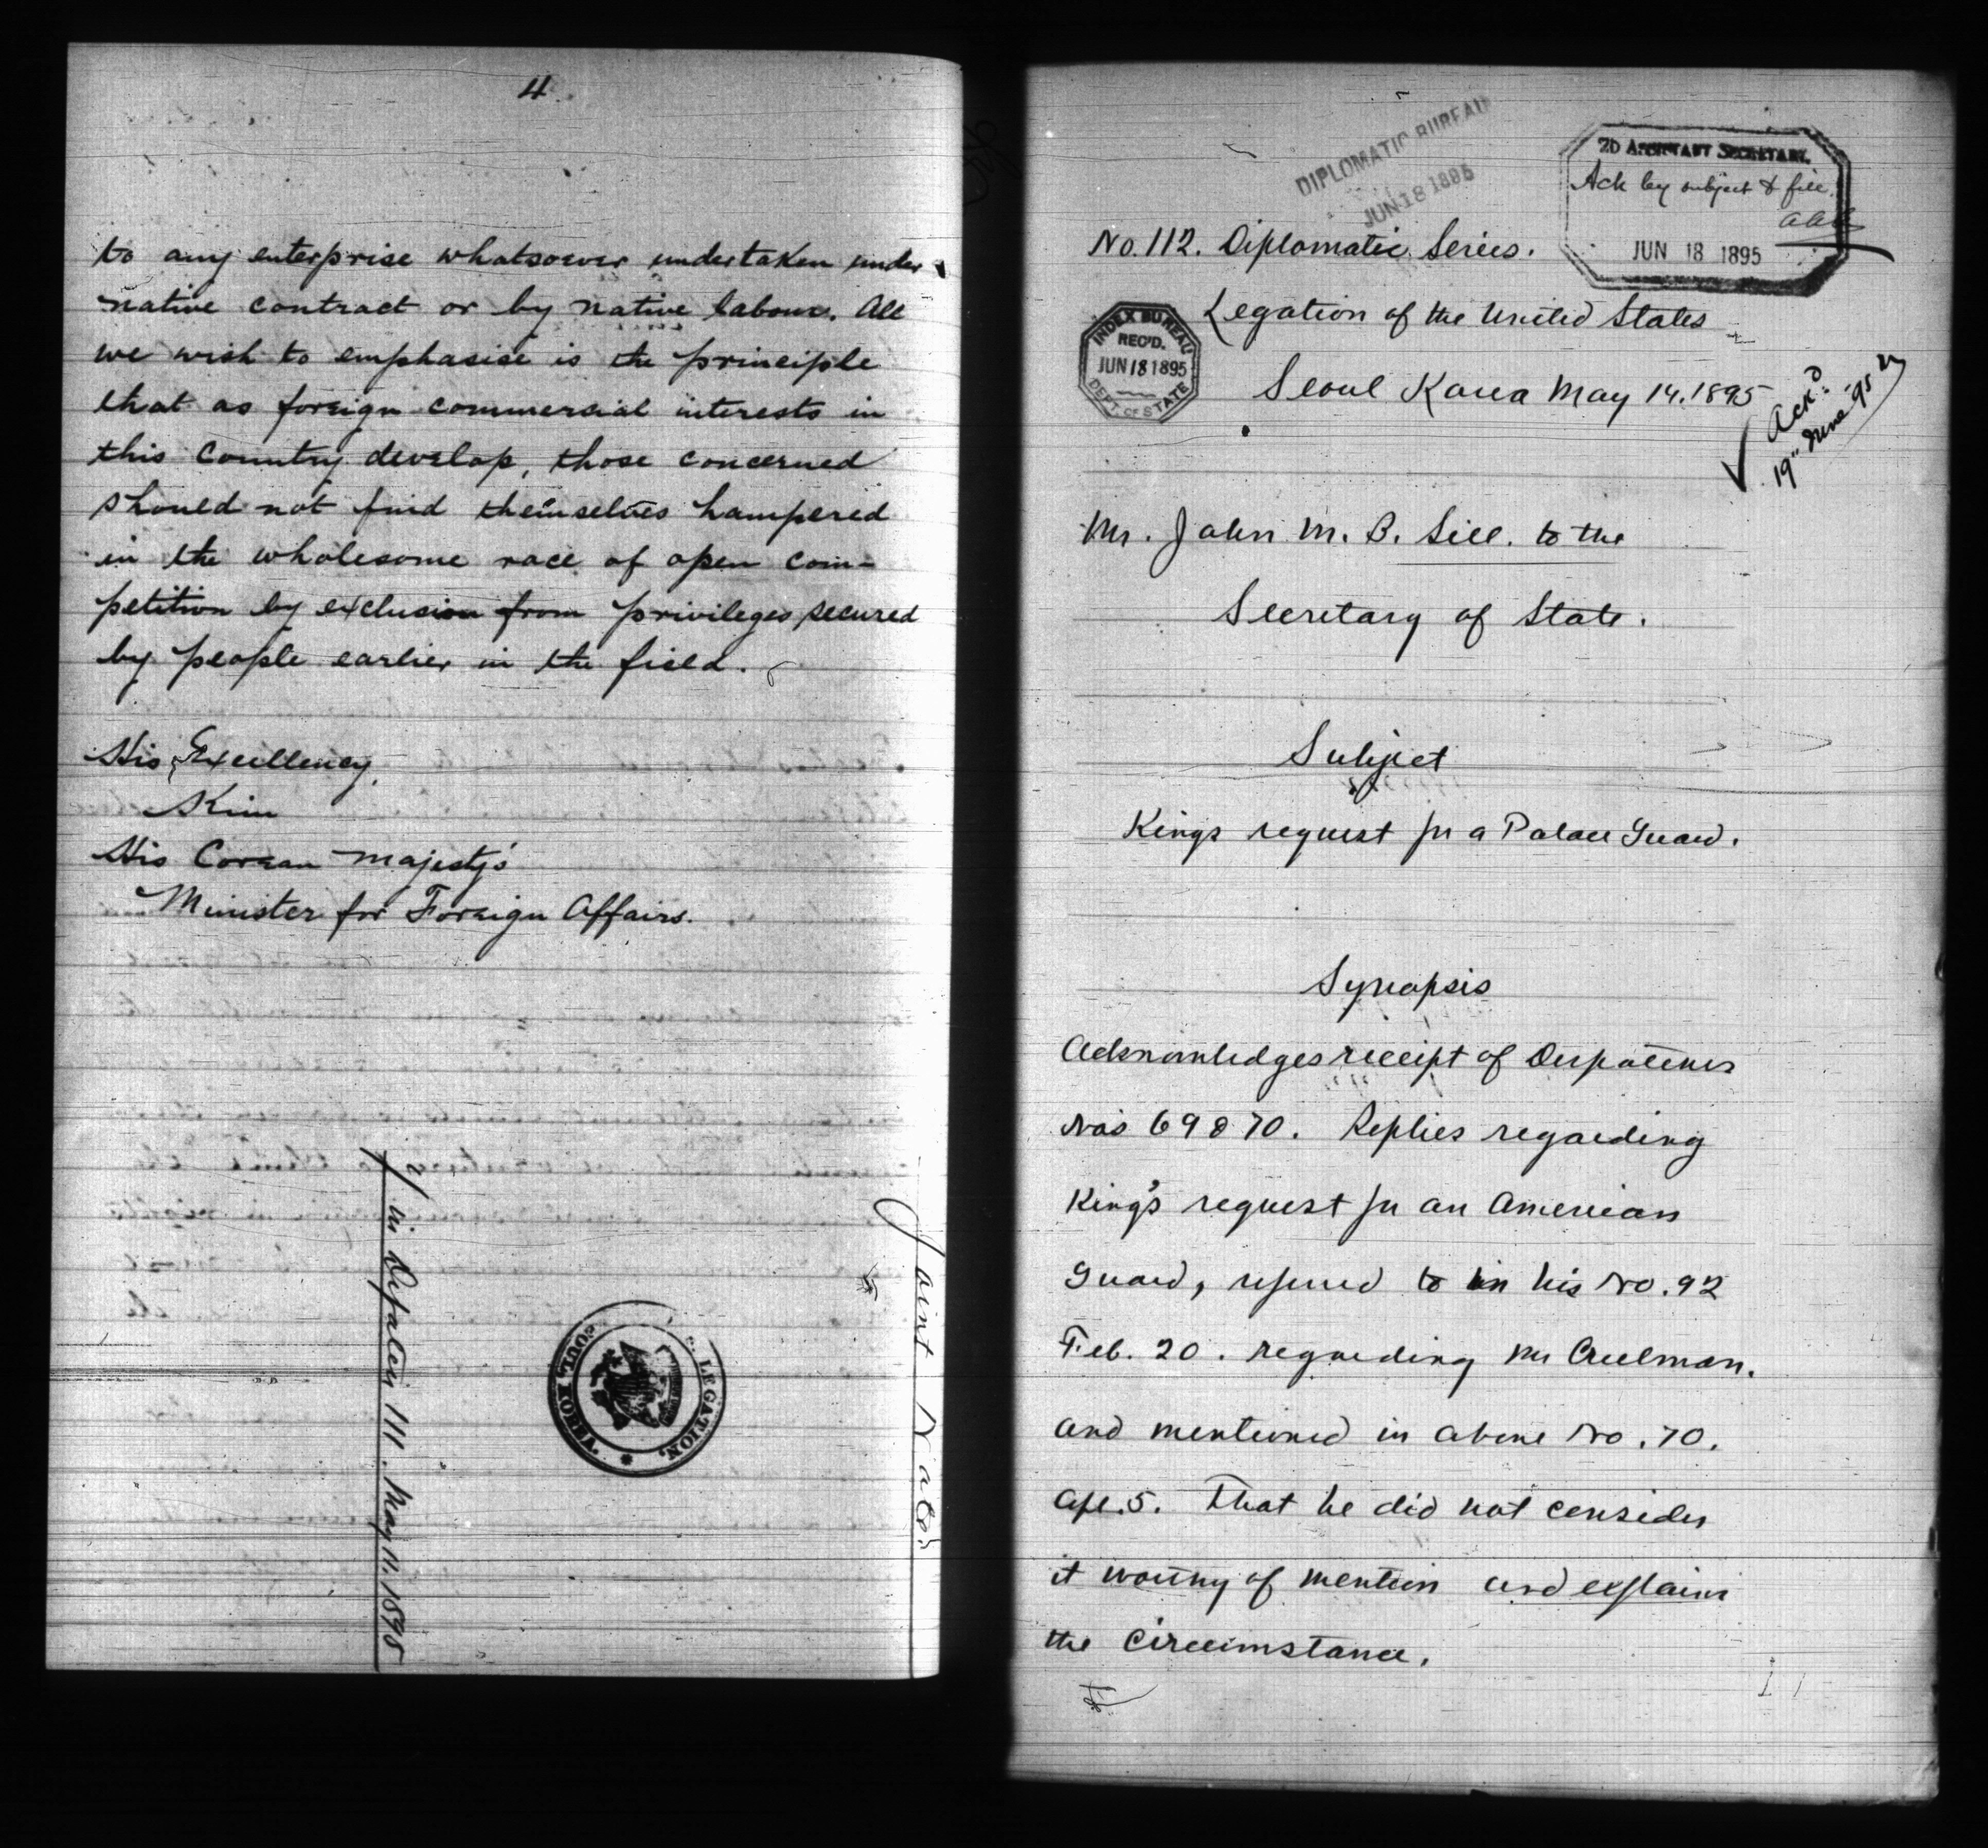 4
to any enterprise whatsoever undertaken under
native contract or by native labour. All
we wish to emphasise is the principle
that as foreign commercial interests in
this Country develop, those concerned
should not find themselves hampered
in the wholesome race of open com-
petition by exclusion from privileges secured
by people earlier in the field.
His Excellency,
Kim
His Corean Majesty's
Minister for Foreign Affairs.
in Dispatch 111. May 11. 1895
LEGATION,
SEOUL, KOREA.
Joint Note
DIPLOMATIC BUREAU
JUN 18 1895
2D ASSISTANT SECRETARY,
Ack by subject & file.
AAA
JUN 18 1895
No. 112. Diplomatic Series.
Legation of the United States
INDEX BUREAU
REC'D.
JUN 18 1895
DEPT OF STATE
Seoul Korea May 14. 1895
Ack'd
19" June '95
Mr. John M. B. Sill. to the
Secretary of State.
Subject
Kings request for a Palace Guard.
Synopsis
Acknowledges receipt of Despatches
Nos 69 & 70. Replies regarding
King's request for an American
Guard, referred to in his No. 92
Feb. 20. regarding Mr Creelman.
and mentioned in above No. 70.
Apl. 5. That he did not consider
it worthy of mention and explains
the circumstance.